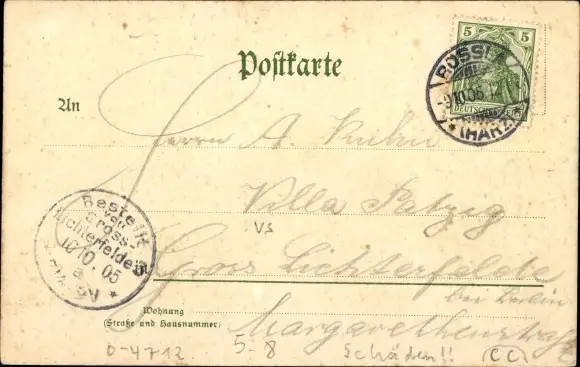 Postkarte
5 5
DEUTSCHES REICH
(HARZ)
An
Herrn A. Kuhn
Villa Patzig
vs
Bestellt
vom
Gross-
Lichterfelde
10/10.05
in
Gross Lichterfelde
bei Berlin
Wohnung
(Straße und Hausnummer)
Margarethenstraße
0-4712
5-8
Schäden!!
(CC)